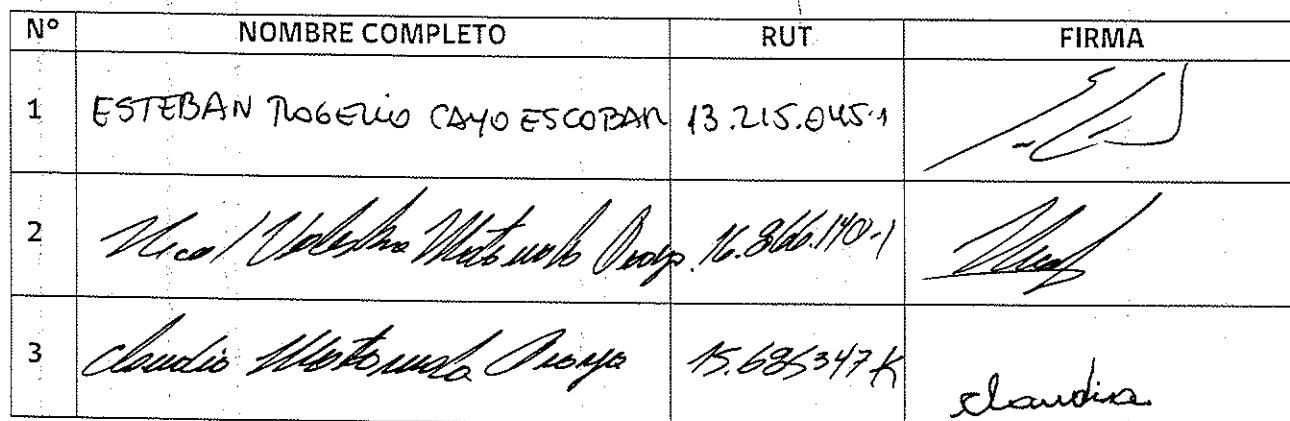 N° NOMBRE COMPLETO RUT FIRMA
1 ESTEBAN ROGELIO CAYO ESCOBAR 13.215.045-1
2 Nicol Maturana 16.866.140-1
3 Claudia Maturana 15.685347K claudia